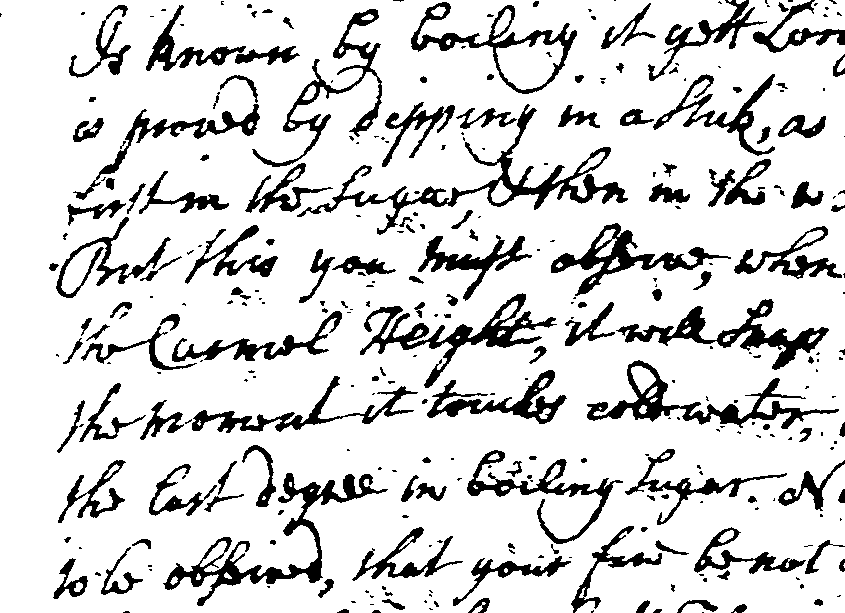 Is known by boiling it yett Long
is proved by dipping in a Stick, as
first in the Sugar, & then in the
But this you must observe, when
the Carmel Height, it will Snap
the moment it touches cold water,
the Last degree in boiling Sugar.
to be observed, that your fire be not